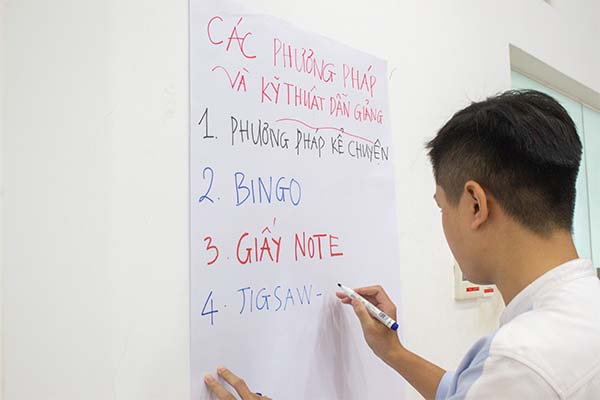 CÁC PHƯƠNG PHÁP
VÀ KỸ THUẬT DẪN GIẢNG
1. PHƯƠNG PHÁP KỂ CHUYỆN
2. BINGO
3. GIẤY NOTE
4. JIGSAW-